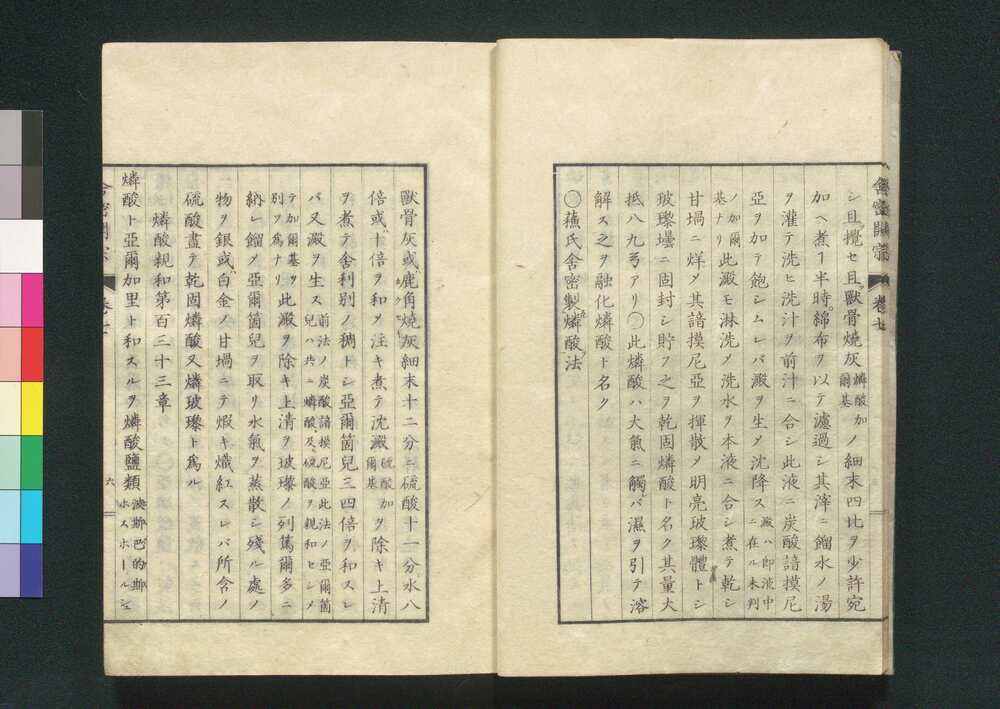 舎密開宗 巻七
シ且ツ攪セ且ツ獣骨焼灰燐酸加爾基ノ細末四比ヲ少許宛
加ヘ煮ヿ半時綿布ヲ以テ濾過シ其滓ニ餾水ノ湯
ヲ灌テ洗ヒ洗汁ヲ前汁ニ合シ此液ニ炭酸諳摸尼
亞ヲ加テ飽シムレバ澱ヲ生〆沈降ス澱ハ即液中ニ在ル未判
ノ加爾基ナリ此澱モ淋洗〆洗水ヲ本液ニ合シ煮テ乾シ
甘堝ニ烊〆其諳摸尼亞ヲ揮散〆明亮玻瓈體トシ
玻瓈壜ニ固封シ貯フ之ヲ乾固燐酸ト名ク其量大
抵八九弓アリ〇此燐酸ハ大氣ニ觸バ濕ヲ引テ溶
解ス之ヲ融化燐酸ト名ク
〇蕪氏舎密製燐酸法
獸骨灰或ハ鹿角燒灰細末十二分ニ硫酸十一分水八
倍或ハ十倍ヲ和〆注キ煮テ沈澱硫酸加爾基ヲ除キ上清
ヲ煮テ舎利別ノ稠トシ亞爾箇兒三四倍ヲ和スレ
バ又澱ヲ生ス前法ノ炭酸諳摸尼亞此法ノ亞爾箇兒ハ共ニ燐酸及ヒ硫酸ヲ親和セシメ
テ加爾基ヲ別ツ為ナリ此澱ヲ除キ上清ヲ玻瓈ノ列篤爾多ニ
納レ餾〆亞爾箇兒ヲ取リ水氣ヲ蒸散シ殘ル處ノ
物ヲ銀或ハ白金ノ甘堝ニテ煆キ熾紅スレバ所含ノ
硫酸盡テ乾固燐酸又燐玻瓈ト爲ル
燐酸親和第百三十三章
燐酸ト亞爾加里ト和スルヲ燐酸鹽類
ホスホール
六